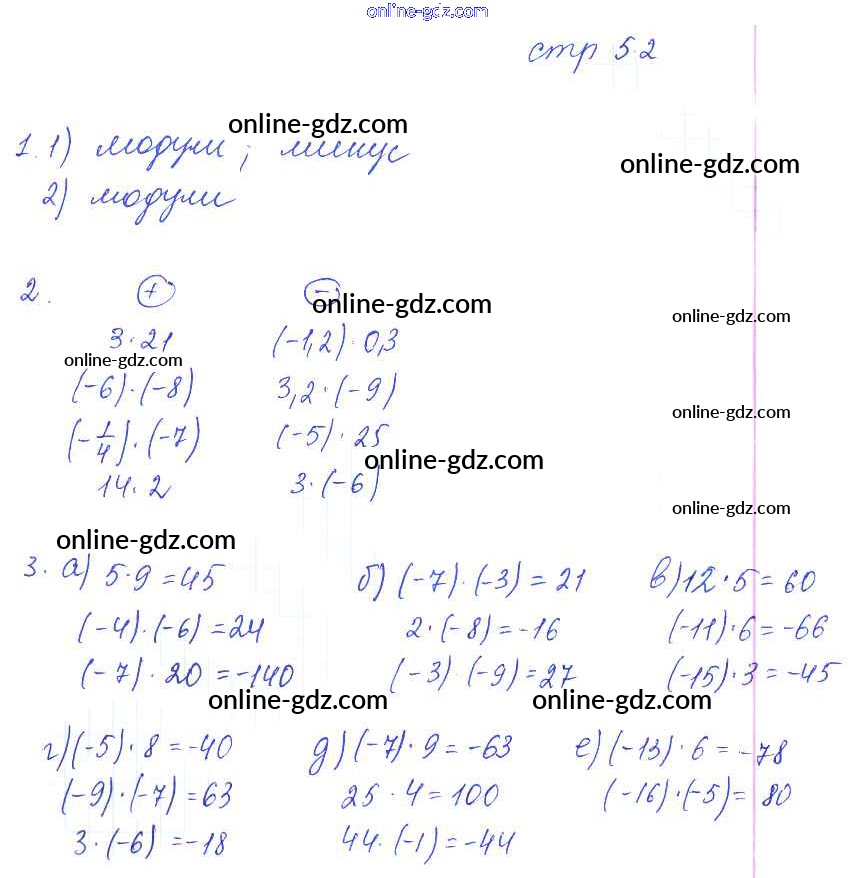 online-gdz.com
стр 52
online-gdz.com
1. 1) модули; минус
online-gdz.com
2) модули
2. + -
online-gdz.com
3·21 (-1,2)·0,3
online-gdz.com
online-gdz.com
(-6)·(-8) 3,2·(-9)
online-gdz.com
(-1/4)·(-7) (-5)·25
online-gdz.com
14·2 3·(-6)
online-gdz.com
online-gdz.com
3. а) 5·9=45 б) (-7)·(-3)=21 в) 12·5=60
(-4)·(-6)=24 2·(-8)=-16 (-11)·6=-66
(-7)·20=-140 (-3)·(-9)=27 (-15)·3=-45
online-gdz.com online-gdz.com
г) (-5)·8=-40 д) (-7)·9=-63 е) (-13)·6=-78
(-9)·(-7)=63 25·4=100 (-16)·(-5)=80
3·(-6)=-18 44·(-1)=-44